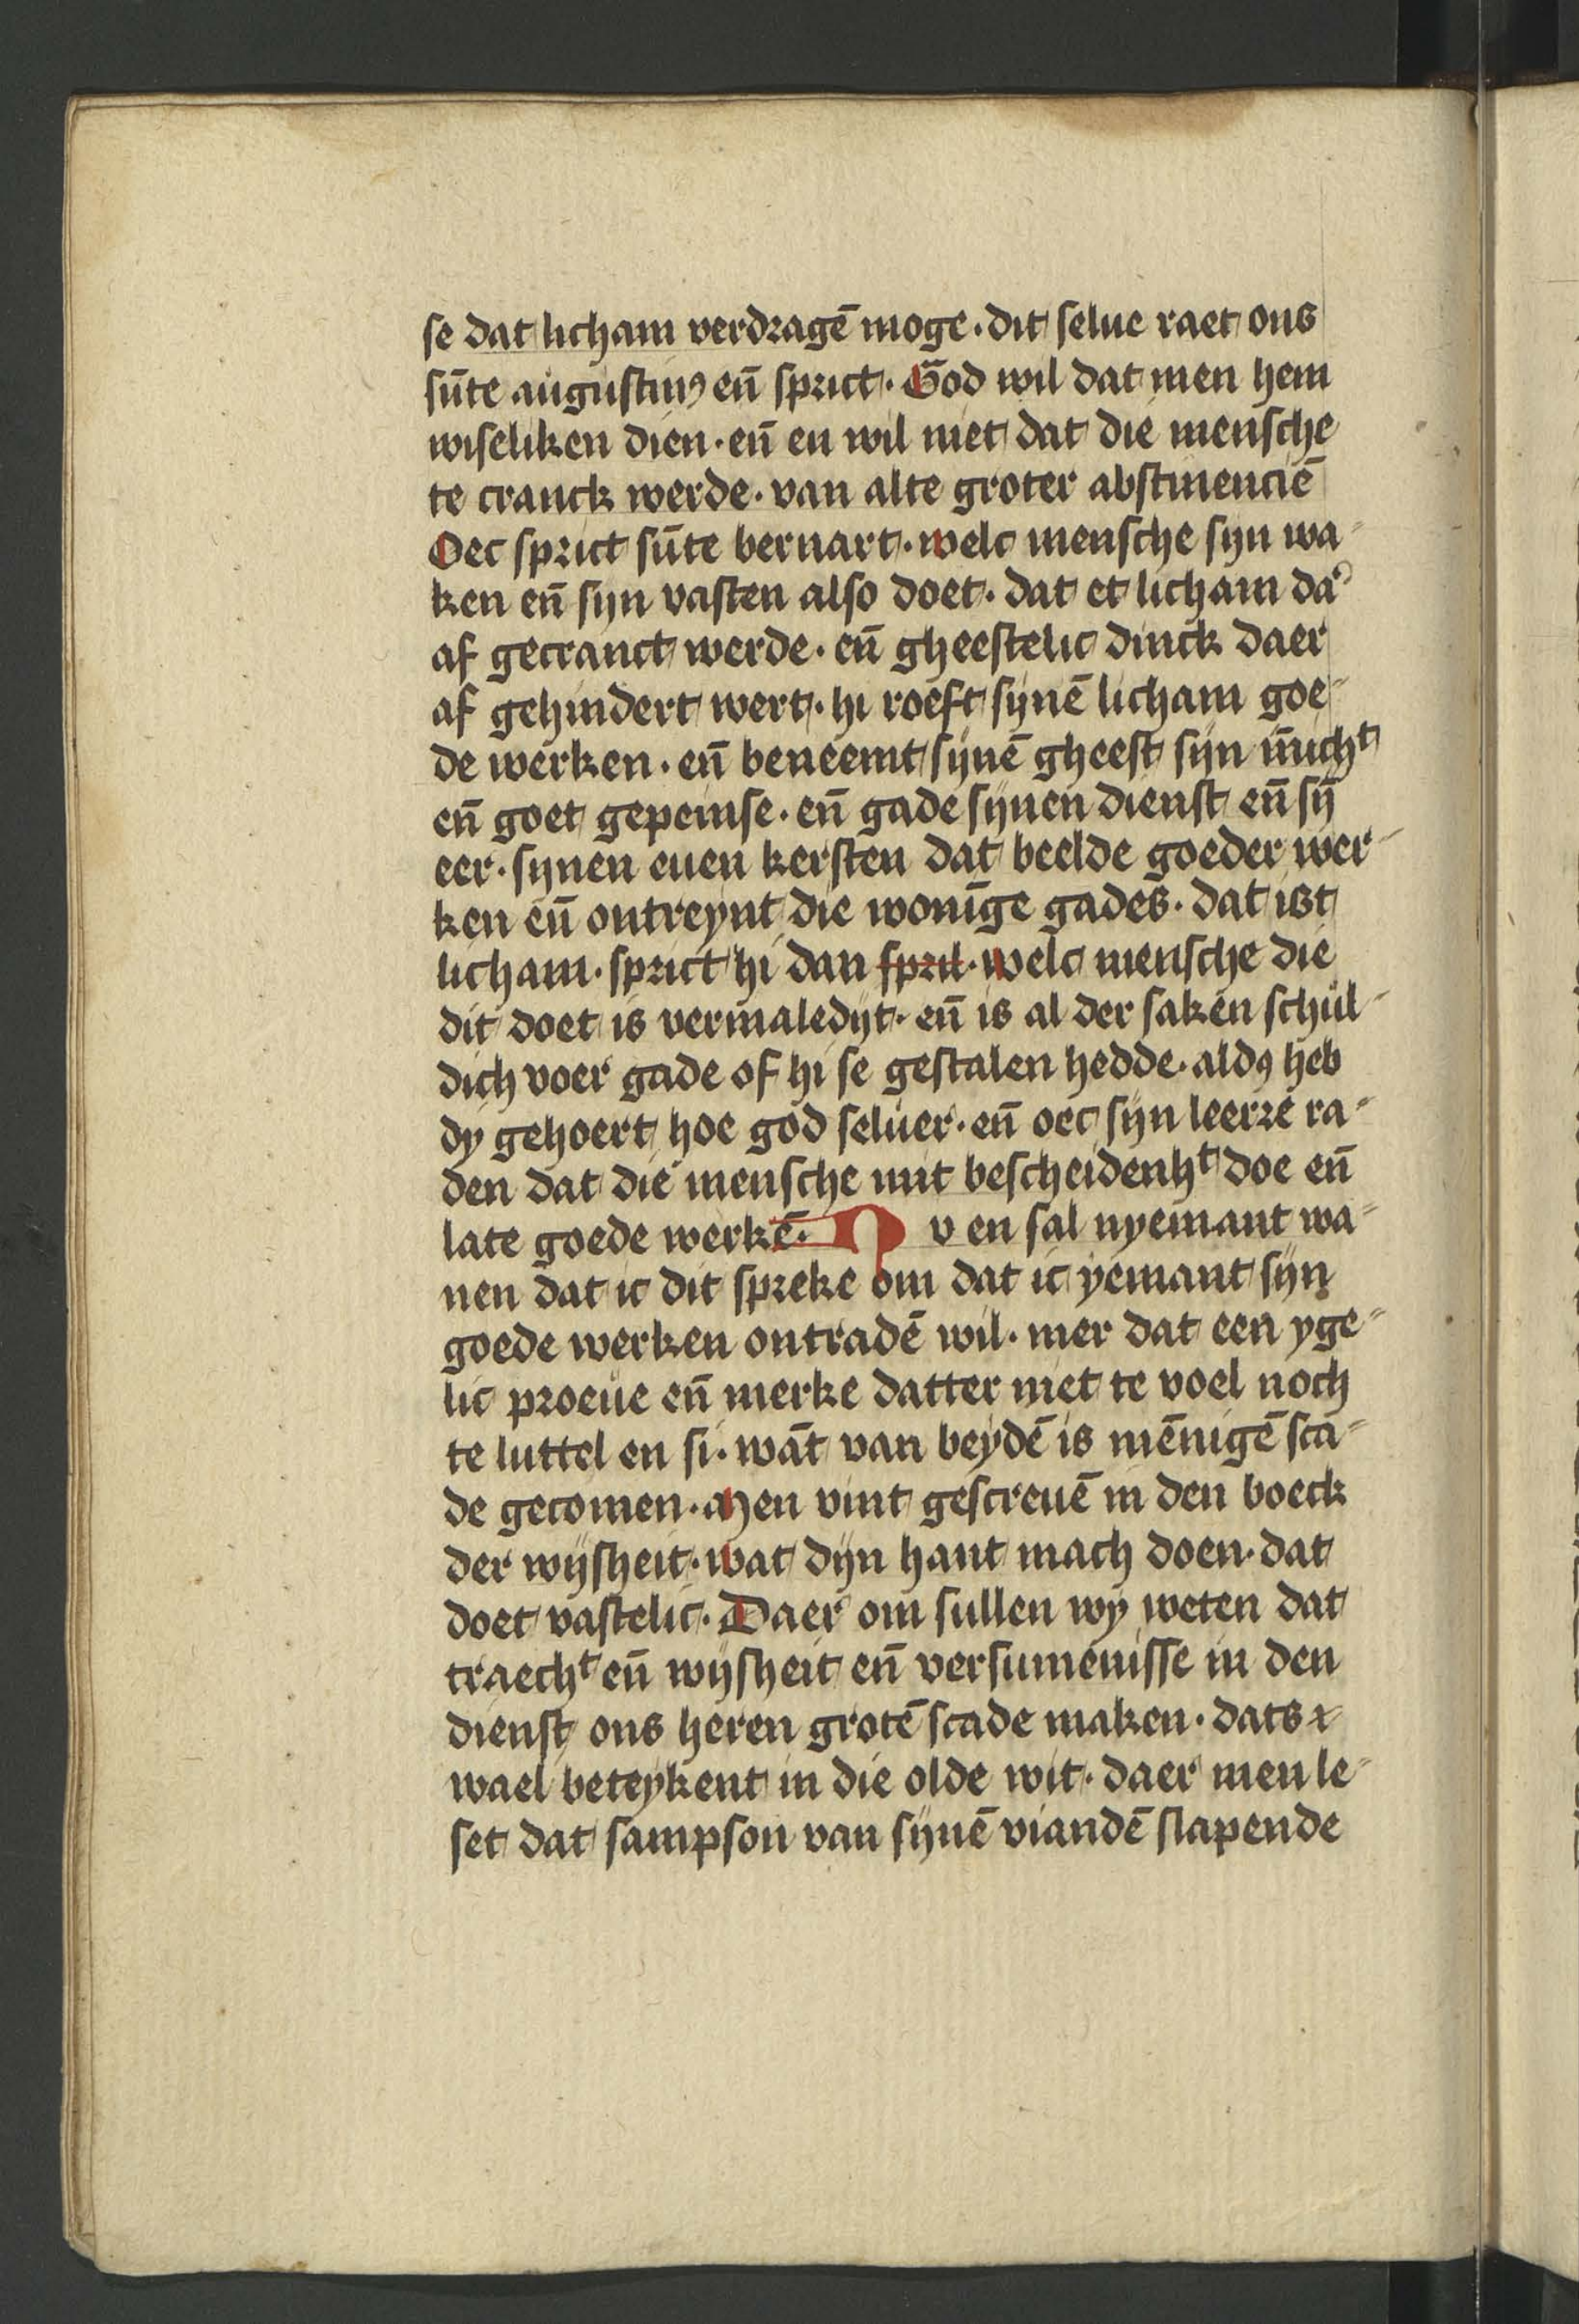 se dat licham verdragē moge · dit selue raet ons
sūte augustinꝰ eñ sprict · God wil dat men hem
wiseliken dien · eñ en wil niet dat die mensche
te cranck werde · van alte groter abstinenciē
Oec sprict sūte bernart · welc mensche syn wa-
ken eñ sijn vasten also doet · dat et licham da͛
af gecranct werde · eñ gheestelic dinck daer
af gehindert wert · hi roeft sijnē licham goe-
de werken · eñ beneemt sijnē gheest sijn
eñ goet gepeinse · eñ gade sijnen dienst eñ sȳ
eer · synen euen kersten dat beelde goeder wer-
ken eñ ontreynt die wonīge gades · dat ist
licham · sprict hi dan sprīt · welc mensche die
dit doet is vermaledijt · eñ is al der saken schul-
dich voer gade of hi se gestalen hedde · aldꝰ heb
dy gehoert hoe god seluer · eñ oec sijn leerre ra-
den dat die mensche mit bescheidenhᵗ doe eñ
late goede werkē · Nv en sal nyemant wa-
nen dat ic dit spreke om dat ic yemant sijn
goede werken ontradē wil · mer dat een yge-
lic proeue eñ merke datter niet te voel noch
te luttel en si · wāt van beydē is mēnigē sca-
de gecomen · Men vint gescreuē in den boeck
der wijsheit · wat dijn hant mach doen · dat
doet vastelic · Daer om sullen wy weten dat
traechᵗ eñ wijsheit eñ versumenisse in den
dienst ons heren grotē scade maken · dats
wael beteykent in die olde wit · daer men le-
set dat sampson van sijnē viandē slapende